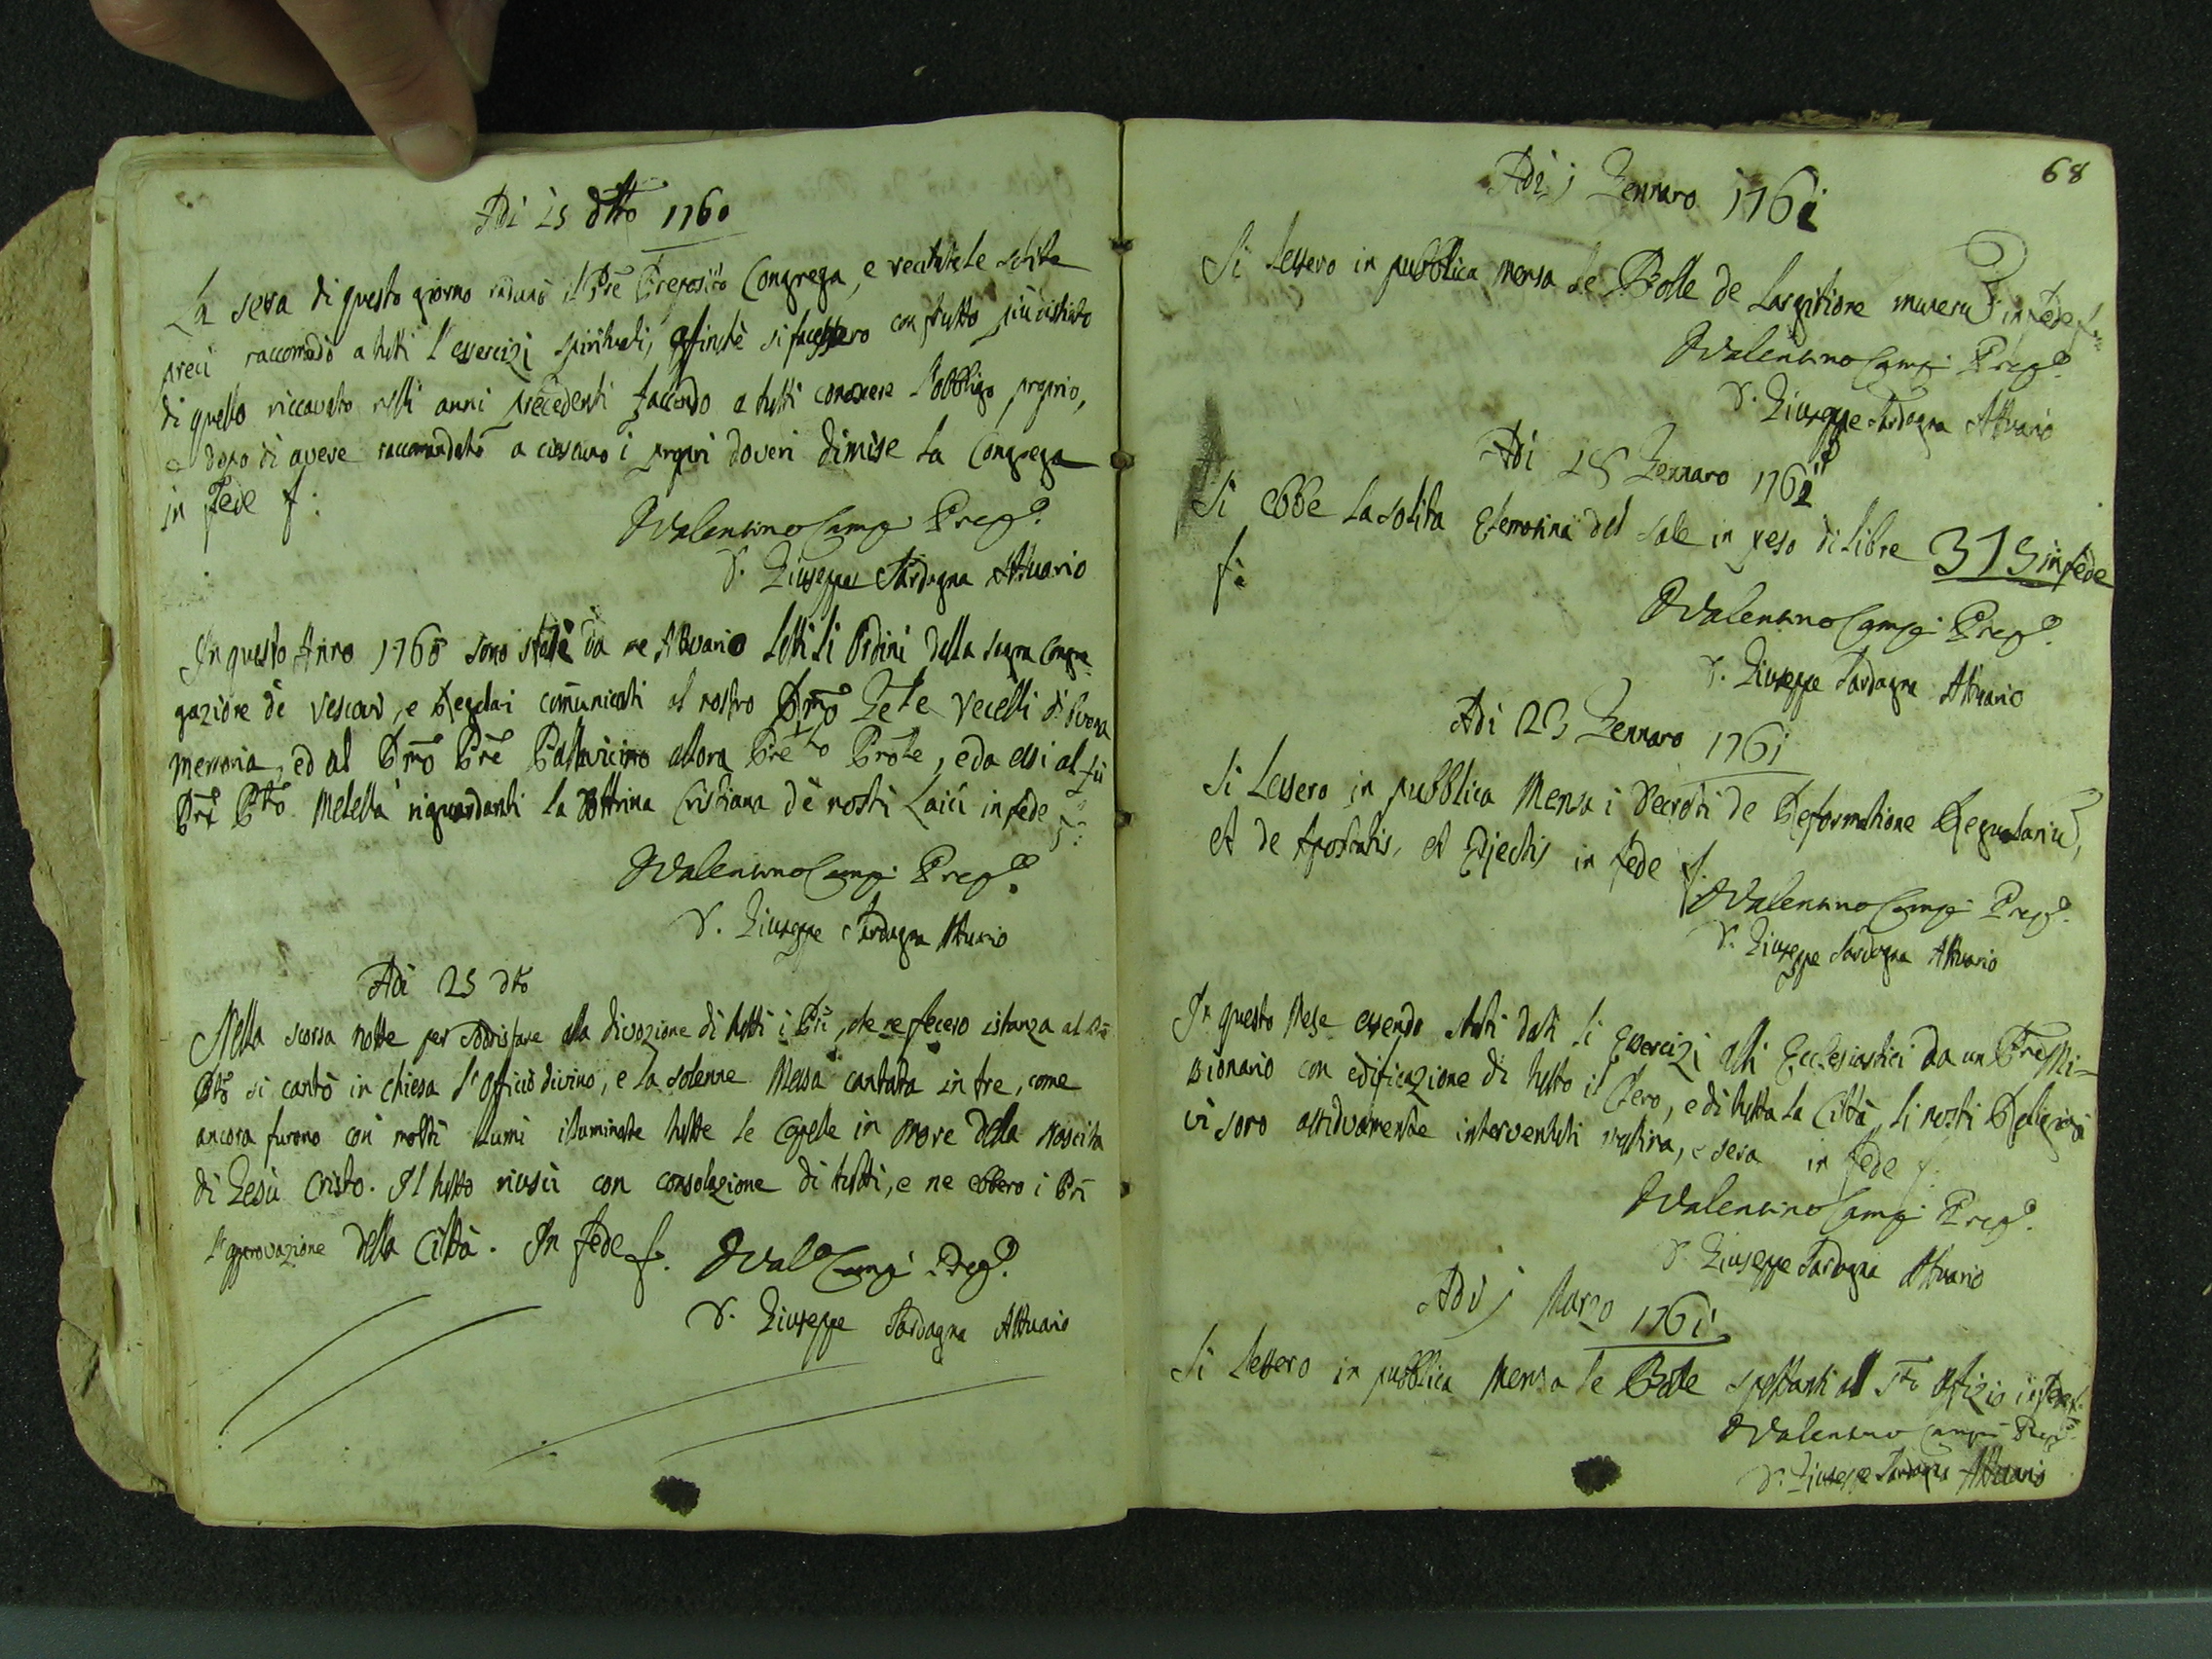 Adi 15 dtto 1760
La sera di questo giorno radunò il Pre Preposito Congrega, e recitate le solite
preci raccomadò a tutti l'essercizi spirituali, affinchè si facessero con frutto più distinto
di quello riccavato nelli anni precedenti facendo a tutti conoscere l'obbligo proprio,
e dopo di avere raccomandato a ciascuno i propri doveri dimise la Congrega
in fede f:
D Valentino Campi Prepo.
D. Giuseppe Sardagna Attuario
In questo Anno 1760 sono stati da me Attuario letti li Ordini della sagra Congre-
gazione de Vescovi, e Regolari comunicati al nostro Rmo Gele Vecelli di buona
memoria, ed al Rmo Pre Pallavicino allora Preto Prole, e da essi al fù
Pre Pto Melella riguardanti la Dottrina Cristiana de nostri Laici in fede f:
D Valentino Campi Prepo.
D. Giuseppe Sardagna Attuario
Adi 25 dto
Nella scorsa notte per sodisfare alla divozione di tutti i Pri, che ne fecero istanza al Pre
Pto si cantò in chiesa l'Officio divino, e la solenne Messa cantata in tre, come
ancora furono con molti lumi illuminate tutte le Capelle in onore della nascita
di Gesù Cristo. Il tutto riuscì con consolazione di tutti, e ne ebbero i Pri
l'approvazione della Città. In fede f.
D Valo Campi Prepo.
D. Giuseppe Sardagna Attuario
68
Adi j Gennaro 1761
Si lessero in pubblica mensa le Bolle de Largitione muneru in fede f:
D Valentino Campi Prepo.
D. Giuseppe Sardagna Attuario
Adi 15 Gennaro 1761
Si ebbe la solita Elemosina del sale in peso di libre 315 in fede
f:
D Valentino Campi Prepo.
D. Giuseppe Sardagna Attuario
Adi 23 Gennaro 1761
Si lessero in pubblica Mensa i Decreti de Reformatione Regulariu,
et de Apostatis, et Ejectis in fede f.
D Valentino Campi Prepo.
D. Giuseppe Sardagna Attuario
In questo Mese essendo stati dati li Essercizi alli Ecclesiastici da un Pre Mi-
sionario con edificazione di tutto il Clero, e di tutta la Città, li nostri Religiosi
vi sono assiduamente intervenuti mattina, e sera in fede f.
D Valentino Campi Prepo.
D. Giuseppe Sardagna Attuario
Adi j Marzo 1761
Si lessero in pubblica Mensa le Bolle spettanti al Sto Offizio in fede f.
D Valentino Campi Prepo.
D. Giuseppe Sardagna Attuario